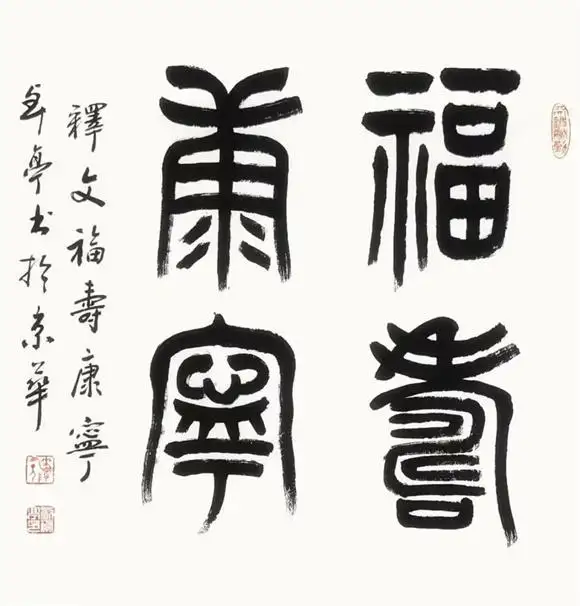 福壽
康寧
釋文福壽康寧
年亭书於京華